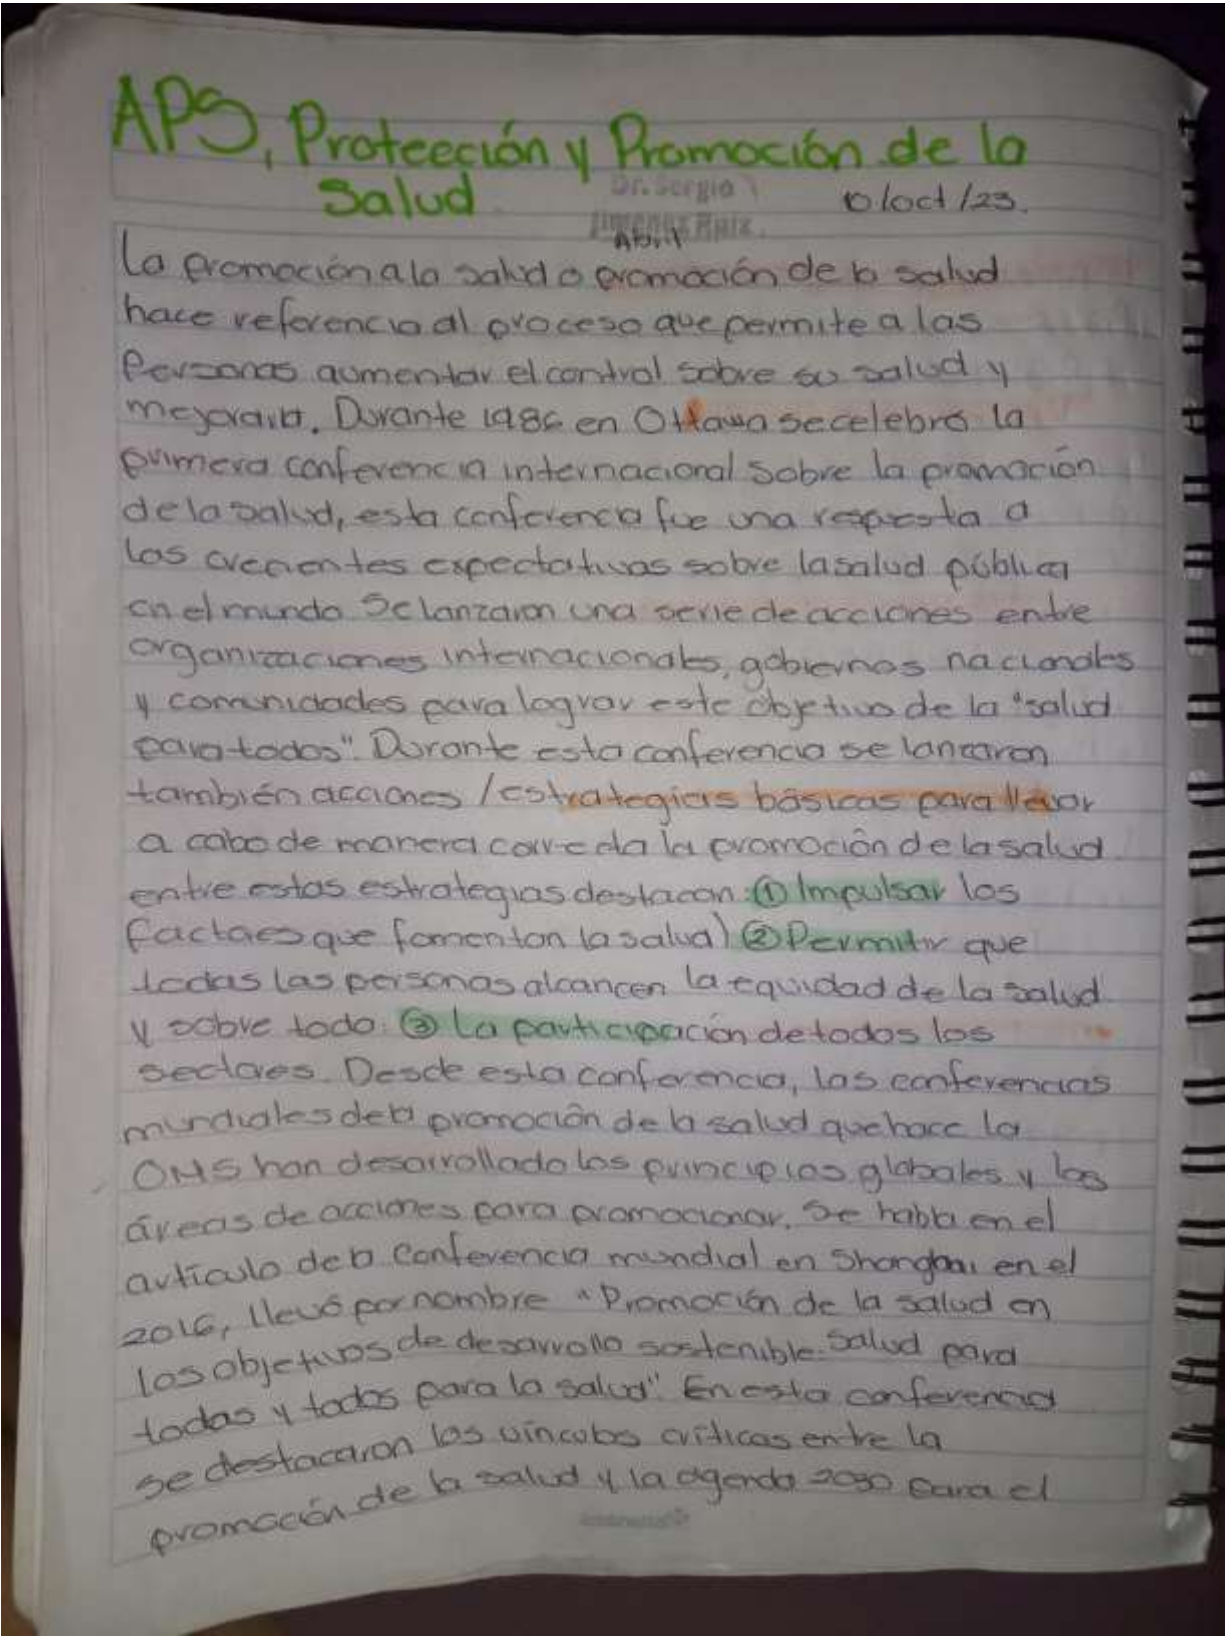 APS, Protección y Promoción de la
Salud
Dr. Sergio
Jiménez Ruiz
10/oct/23.
Abril
La promoción a la salud o promoción de la salud
hace referencia al proceso que permite a las
Personas aumentar el control sobre su salud y
mejorarla. Durante 1986 en Ottawa se celebró la
primera conferencia internacional sobre la promoción
de la salud, esta conferencia fue una respuesta a
las crecientes expectativas sobre la salud pública
en el mundo. Se lanzaron una serie de acciones entre
organizaciones internacionales, gobiernos nacionales
y comunidades para lograr este objetivo de la "salud
para todos". Durante esta conferencia se lanzaron
también acciones / estrategias básicas para llevar
a cabo de manera correcta la promoción de la salud
entre estas estrategias destacan: ① Impulsar los
factores que fomentan la salud) ② Permitir que
todas las personas alcancen la equidad de la salud
y sobre todo: ③ La participación de todos los
sectores. Desde esta conferencia, las conferencias
mundiales de la promoción de la salud que hace la
OMS han desarrollado los principios globales y las
áreas de acciones para promocionar. Se habla en el
artículo de la conferencia mundial en Shanghai en el
2016, llevó por nombre "Promoción de la salud en
los objetivos de desarrollo sostenible. Salud para
todas y todos para la salud". En esta conferencia
se destacaron los vínculos críticos entre la
promoción de la salud y la agenda 2030 para el